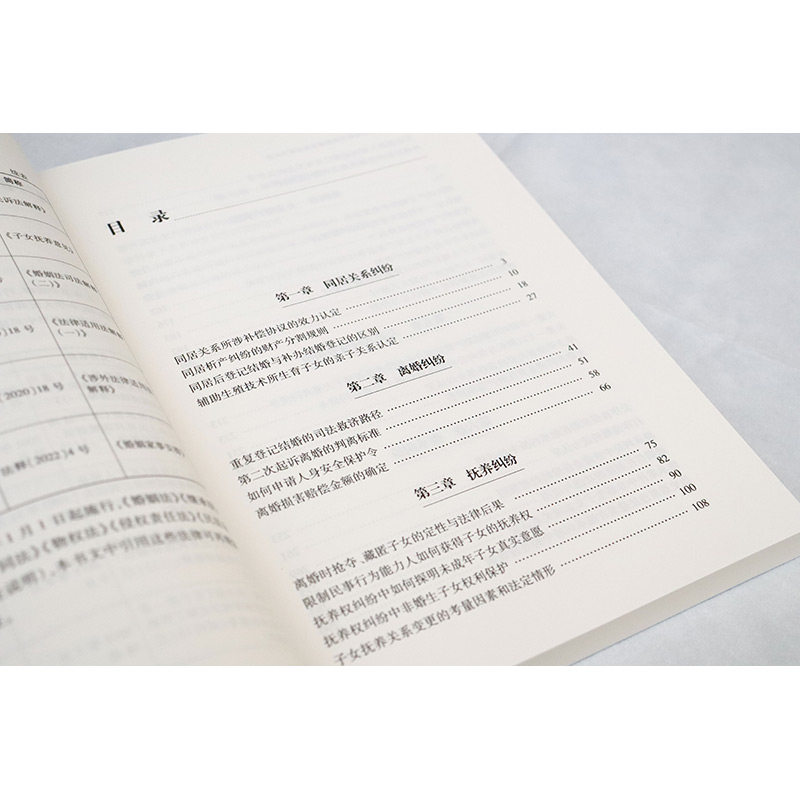 续表
简称
《子女抚养意见》
《婚姻法司法解释
(二)》
18号
《法律适用法解释
(一)》
〔2020〕18号
《涉外法律适用
解释》
法释〔2022〕4号
1月1日起施行,《婚姻法》《继
同法》《物权法》《侵权责任法》
说明),本书文中引用这些法律
目 录
第一章 同居关系纠纷
同居关系所涉补偿协议的效力认定 3
同居析产纠纷的财产分割规则 10
同居后登记结婚与补办结婚登记的区别 18
辅助生殖技术所生育子女的亲子关系认定 27
第二章 离婚纠纷
重复登记结婚的司法救济路径 41
第二次起诉离婚的判离标准 51
如何申请人身安全保护令 58
离婚损害赔偿金额的确定 66
第三章 抚养纠纷
离婚时抢夺、藏匿子女的定性与法律后果 75
限制民事行为能力人如何获得子女的抚养权 82
抚养权纠纷中如何探明未成年子女真实意愿 90
抚养权纠纷中非婚生子女权利保护 100
子女抚养关系变更的考量因素和法定情形 108